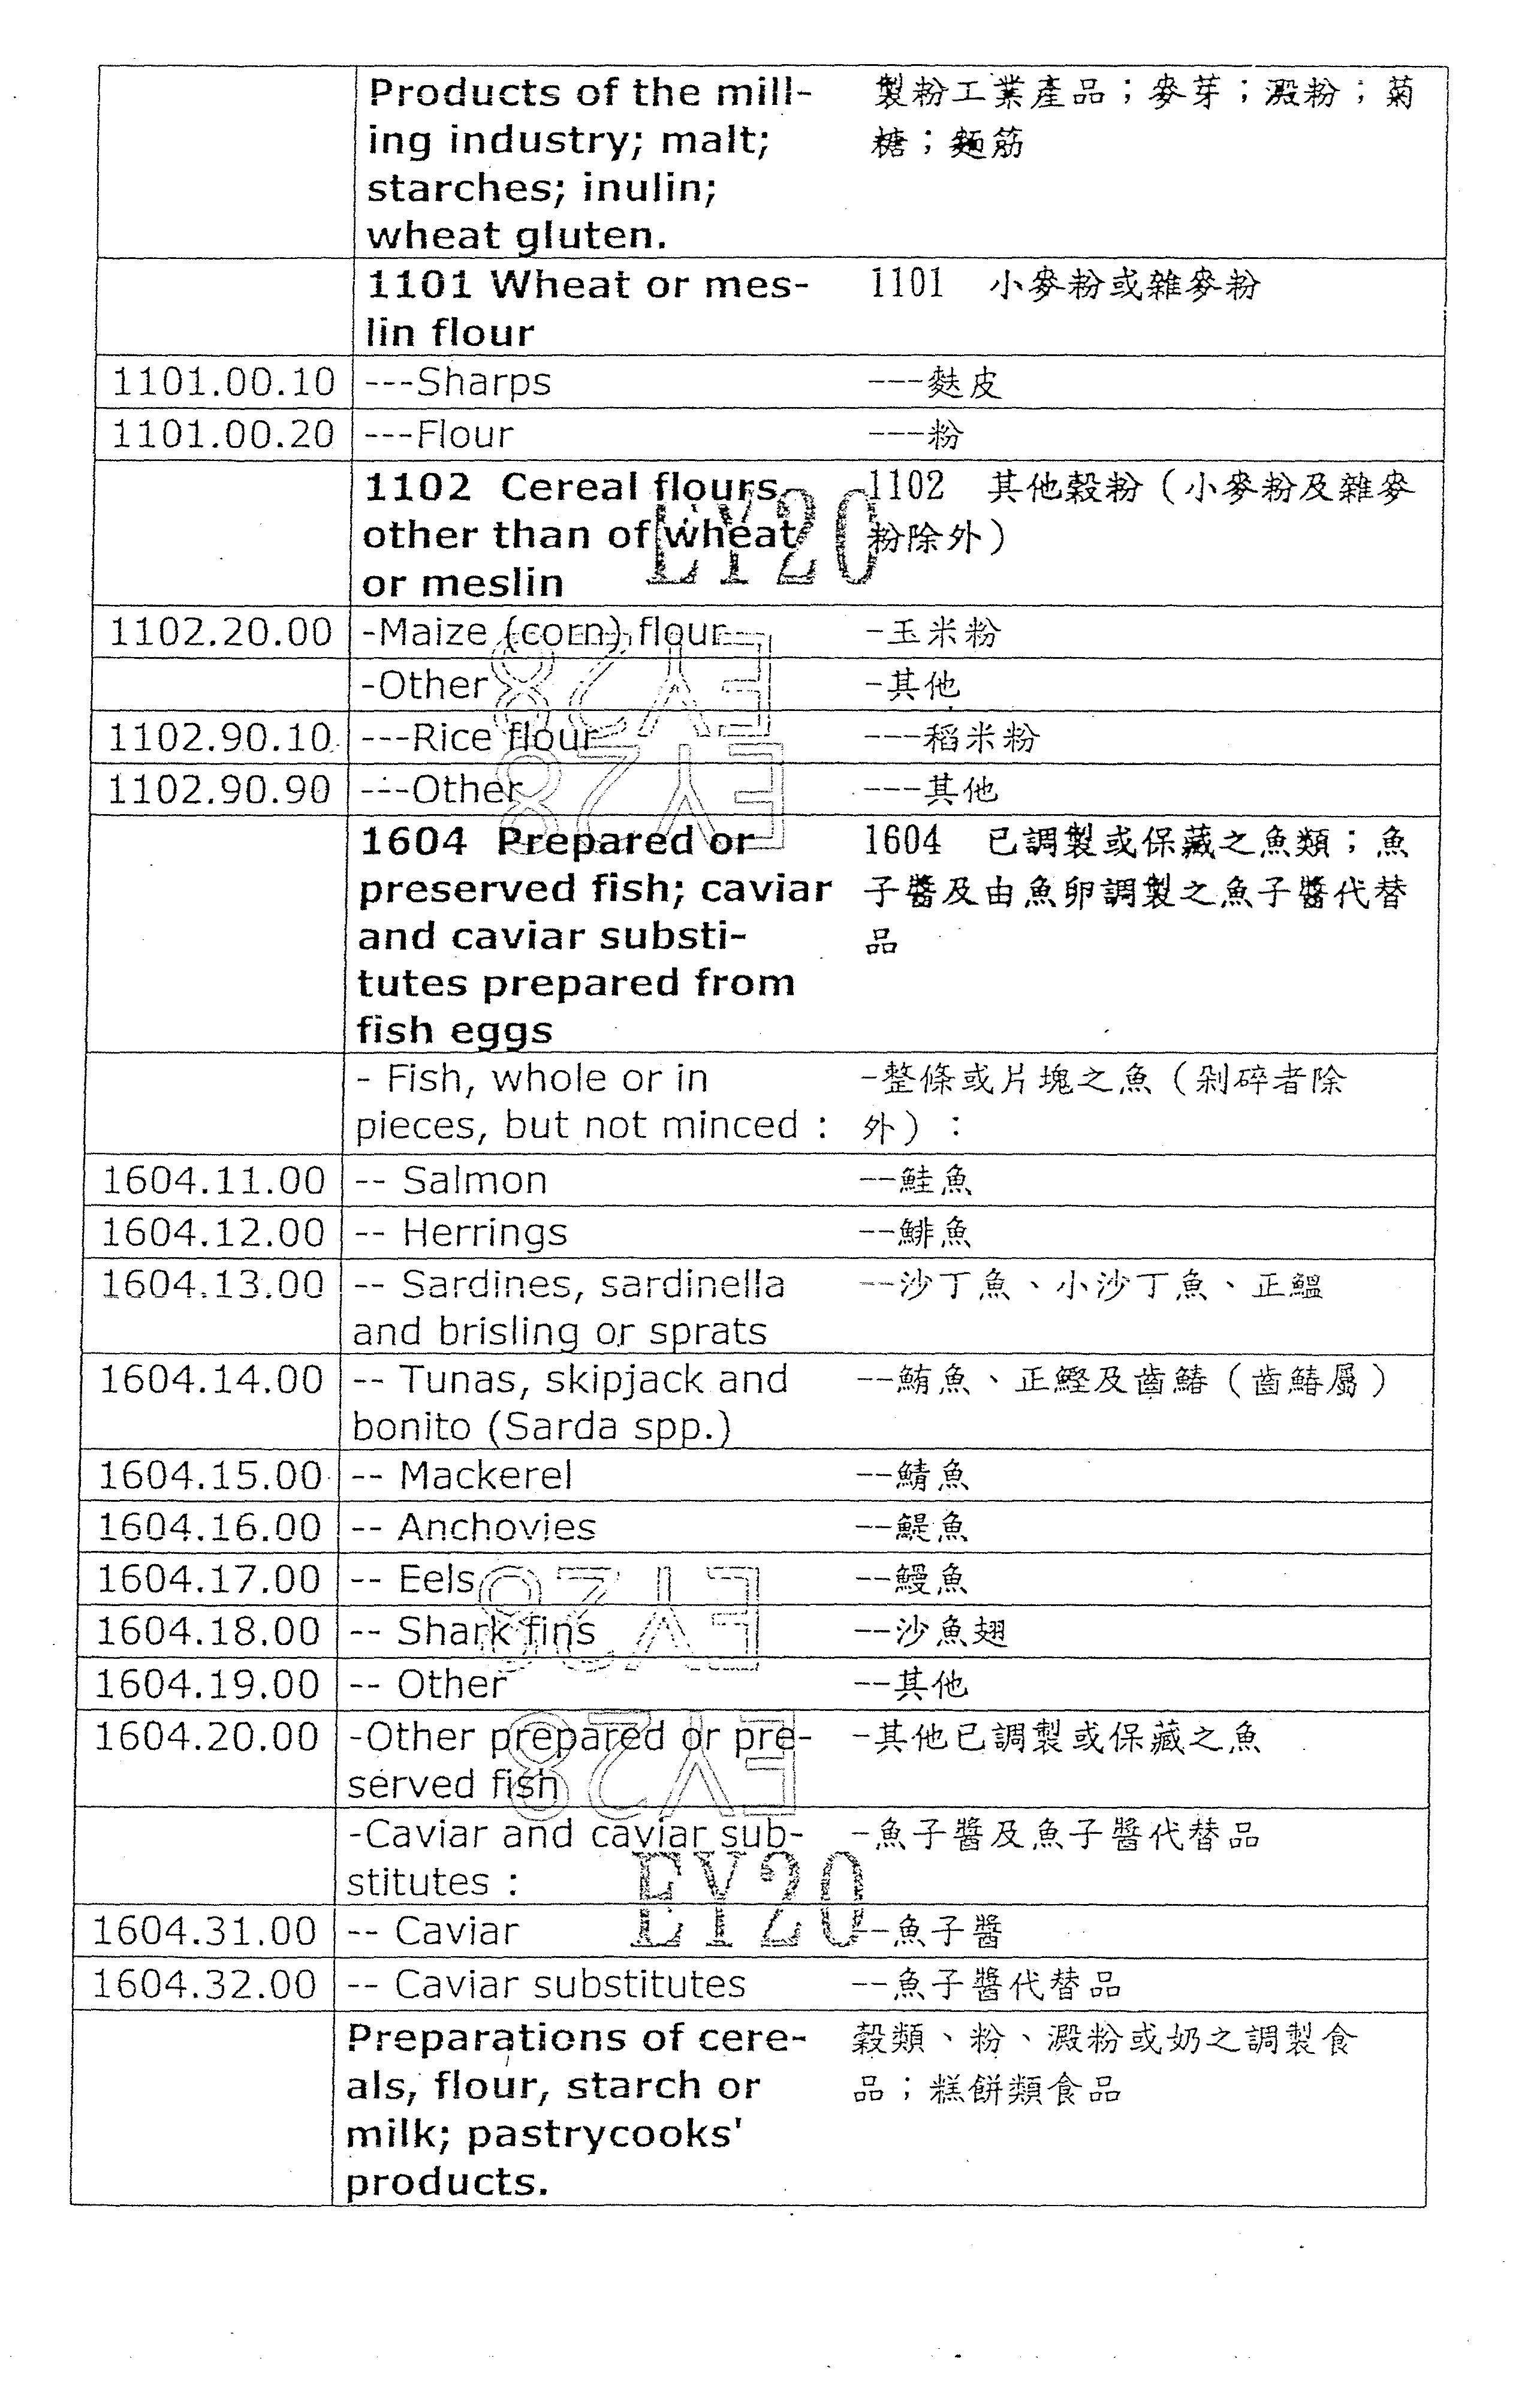 Products of the mill- 製粉工業產品；麥芽；澱粉；菊
ing industry; malt; 糖；麵筋
starches; inulin;
wheat gluten.
1101 Wheat or mes- 1101 小麥粉或雜麥粉
lin flour
1101.00.10 ---Sharps ---麩皮
1101.00.20 ---Flour ---粉
1102 Cereal flours 1102 其他穀粉（小麥粉及雜麥
other than of wheat 粉除外）
or meslin
EY20
1102.20.00 -Maize (corn) flour -玉米粉
-Other -其他
EY28
1102.90.10 ---Rice flour ---稻米粉
1102.90.90 ---Other ---其他
EY28
1604 Prepared or 1604 已調製或保藏之魚類；魚
preserved fish; caviar 子醬及由魚卵調製之魚子醬代替
and caviar substi- 品
tutes prepared from
fish eggs
- Fish, whole or in -整條或片塊之魚（剁碎者除
pieces, but not minced : 外）：
1604.11.00 -- Salmon --鮭魚
1604.12.00 -- Herrings --鯡魚
1604.13.00 -- Sardines, sardinella --沙丁魚、小沙丁魚、正鰮
and brisling or sprats
1604.14.00 -- Tunas, skipjack and --鮪魚、正鰹及齒鰆（齒鰆屬）
bonito (Sarda spp.)
1604.15.00 -- Mackerel --鯖魚
1604.16.00 -- Anchovies --鯷魚
1604.17.00 -- Eels --鰻魚
1604.18.00 -- Shark fins --沙魚翅
EY28
1604.19.00 -- Other --其他
1604.20.00 -Other prepared or pre- -其他已調製或保藏之魚
served fish
EY28
-Caviar and caviar sub- -魚子醬及魚子醬代替品
stitutes :
EY20
1604.31.00 -- Caviar --魚子醬
1604.32.00 -- Caviar substitutes --魚子醬代替品
Preparations of cere- 穀類、粉、澱粉或奶之調製食
als, flour, starch or 品；糕餅類食品
milk; pastrycooks'
products.